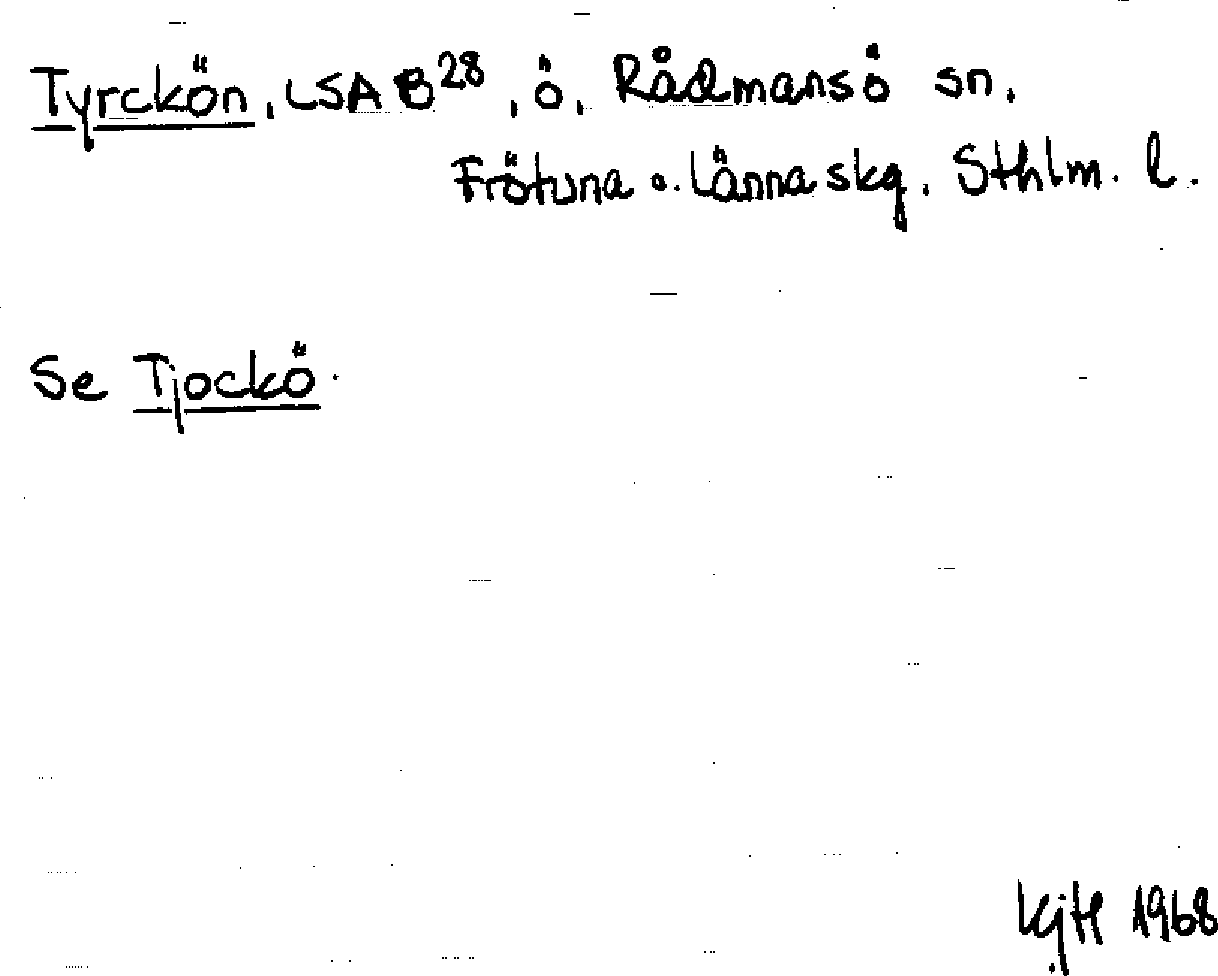 Tyrckön, LSA B28, ö, Rådmansö sn.
Frötuna o. Länna skg, Sthlm. l.
Se Tjockö.
KjH 1968